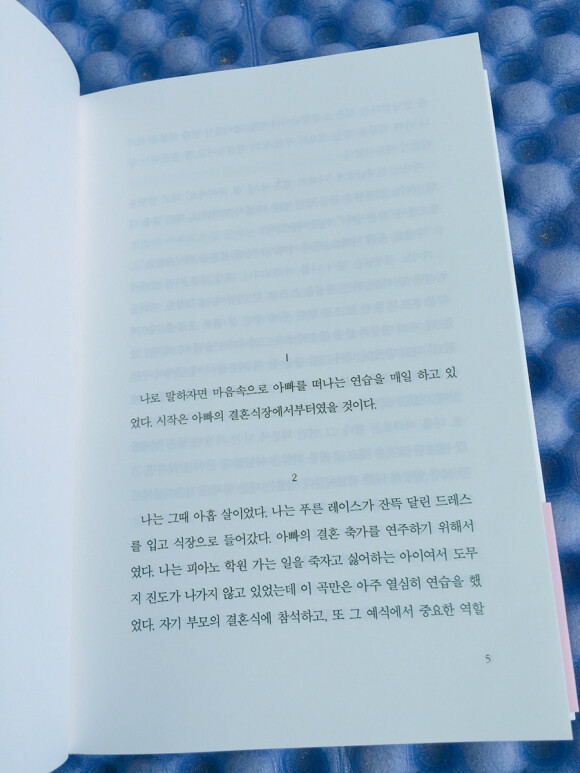 1
나로 말하자면 마음속으로 아빠를 떠나는 연습을 매일 하고 있
었다. 시작은 아빠의 결혼식장에서부터였을 것이다.
2
나는 그때 아홉 살이었다. 나는 푸른 레이스가 잔뜩 달린 드레스
를 입고 식장으로 들어갔다. 아빠의 결혼 축가를 연주하기 위해서
였다. 나는 피아노 학원 가는 일을 죽자고 싫어하는 아이여서 도무
지 진도가 나가지 않고 있었는데 이 곡만은 아주 열심히 연습을 했
었다. 자기 부모의 결혼식에 참석하고, 또 그 예식에서 중요한 역할
5